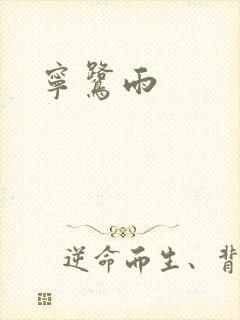 寧鷺雨
逆命而生、背